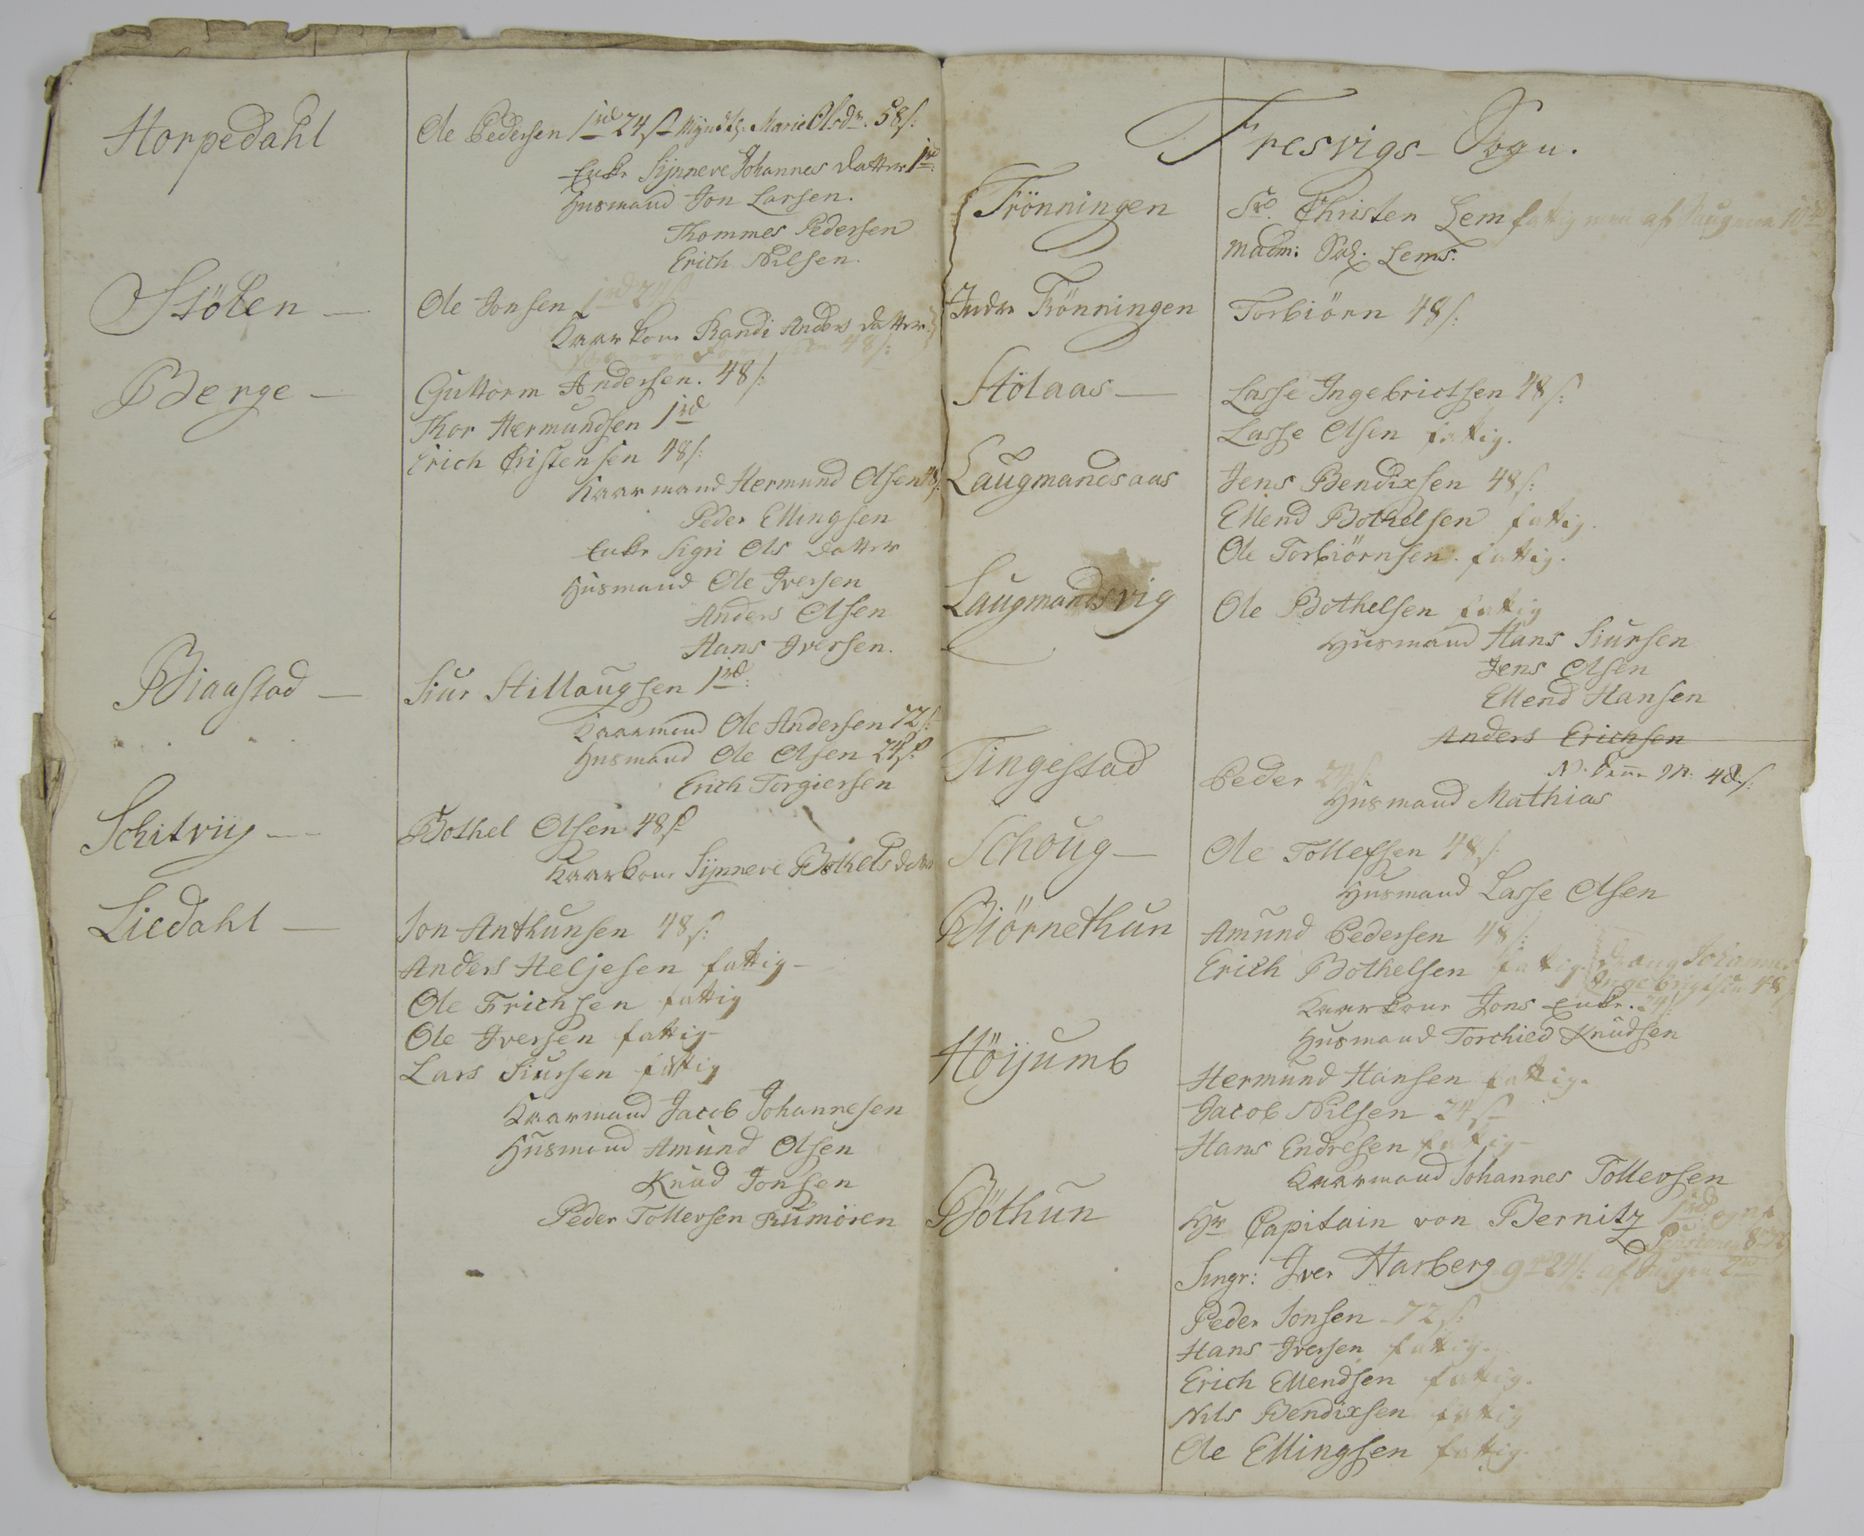 Horpedahl
Ole Pedersen 1rd 24s Myndtl: Marie Olsdr. 58s:
Enke Synneve Johannes Datter 1rd
Husmand Jon Larsen.
Thommes Pedersen
Erich Nilsen.
Stölen —
Ole Jonsen 1rd 24s
Kaarkone Randi Anders Datter
48s:
Berge —
Guttorm Andersen. 48s:
Thor Hermundsen 1rd
Erich Christensen 48s:
Kaarmand Hermund Olsen 48s:
Peder Ellingsen
Enke Sigri Ols Datter
Husmand Ole Iversen
Anders Olsen
Hans Iversen.
Biaastad —
Siur Stillaugsen 1rd:
Kaarmand Ole Andersen 72s:
Husmand Ole Olsen 24s
Erich Torgiersen
Schitviig —
Bothel Olsen 48s
Kaarkone Synneve Bothels datter
Liedahl —
Jon Anthunsen 48s:
Anders Heljesen fattig –
Ole Erichsen fattig
Ole Iversen fattig –
Lars Siursen fattig
Kaarmand Jacob Johannesen
Husmand Amund Olsen
Knud Jonsen
Peder Tollevsen Rumören
Fresvigs Sogn.
Frönningen
Sr. Christen Lem fattig
Madm: Sal. Lems.
Indre Frönningen
Torbiörn 48s:
Stölaas —
Lasse Ingebrictsen 48s:
Lasse Olsen fattig.
Laugmandsaas
Jens Bendixsen 48s:
Ellend Bothelsen fattig.
Ole Torbiörnsen. fattig.
Laugmandsvig
Ole Bothelsen fattig
Husmand Hans Siursen
Jens Olsen
Ellend Hansen
Anders Erichsen
Tingestad
Peder 24s:
48s:
Husmand Mathias
Schoug —
Ole Tollefsen 48s:
Husmand Lasse Olsen
Biörnethun
Amund Pedersen 48s:
Erich Bothelsen fattig. Draug Johannes
Ingebrigtsen 48s
Kaarkone Jons Enke. 24s:
Husmand Torchied Knudsen
Höijumb
Hermund Hansen fattig.
Jacob Nilsen 24s
Hans Endresen fattig –
Kaarmand Johannes Tollevsen
Böthun
Hr Capitain von Bernitz 1rd egne
8rd
Singr: Iver Aarberg 9rd 24s:
Peder Jonsen 72s:
Hans Iversen fattig.
Erich Ellendsen fattig.
Nils Bendixsen fattig
Ole Ellingsen fattig.